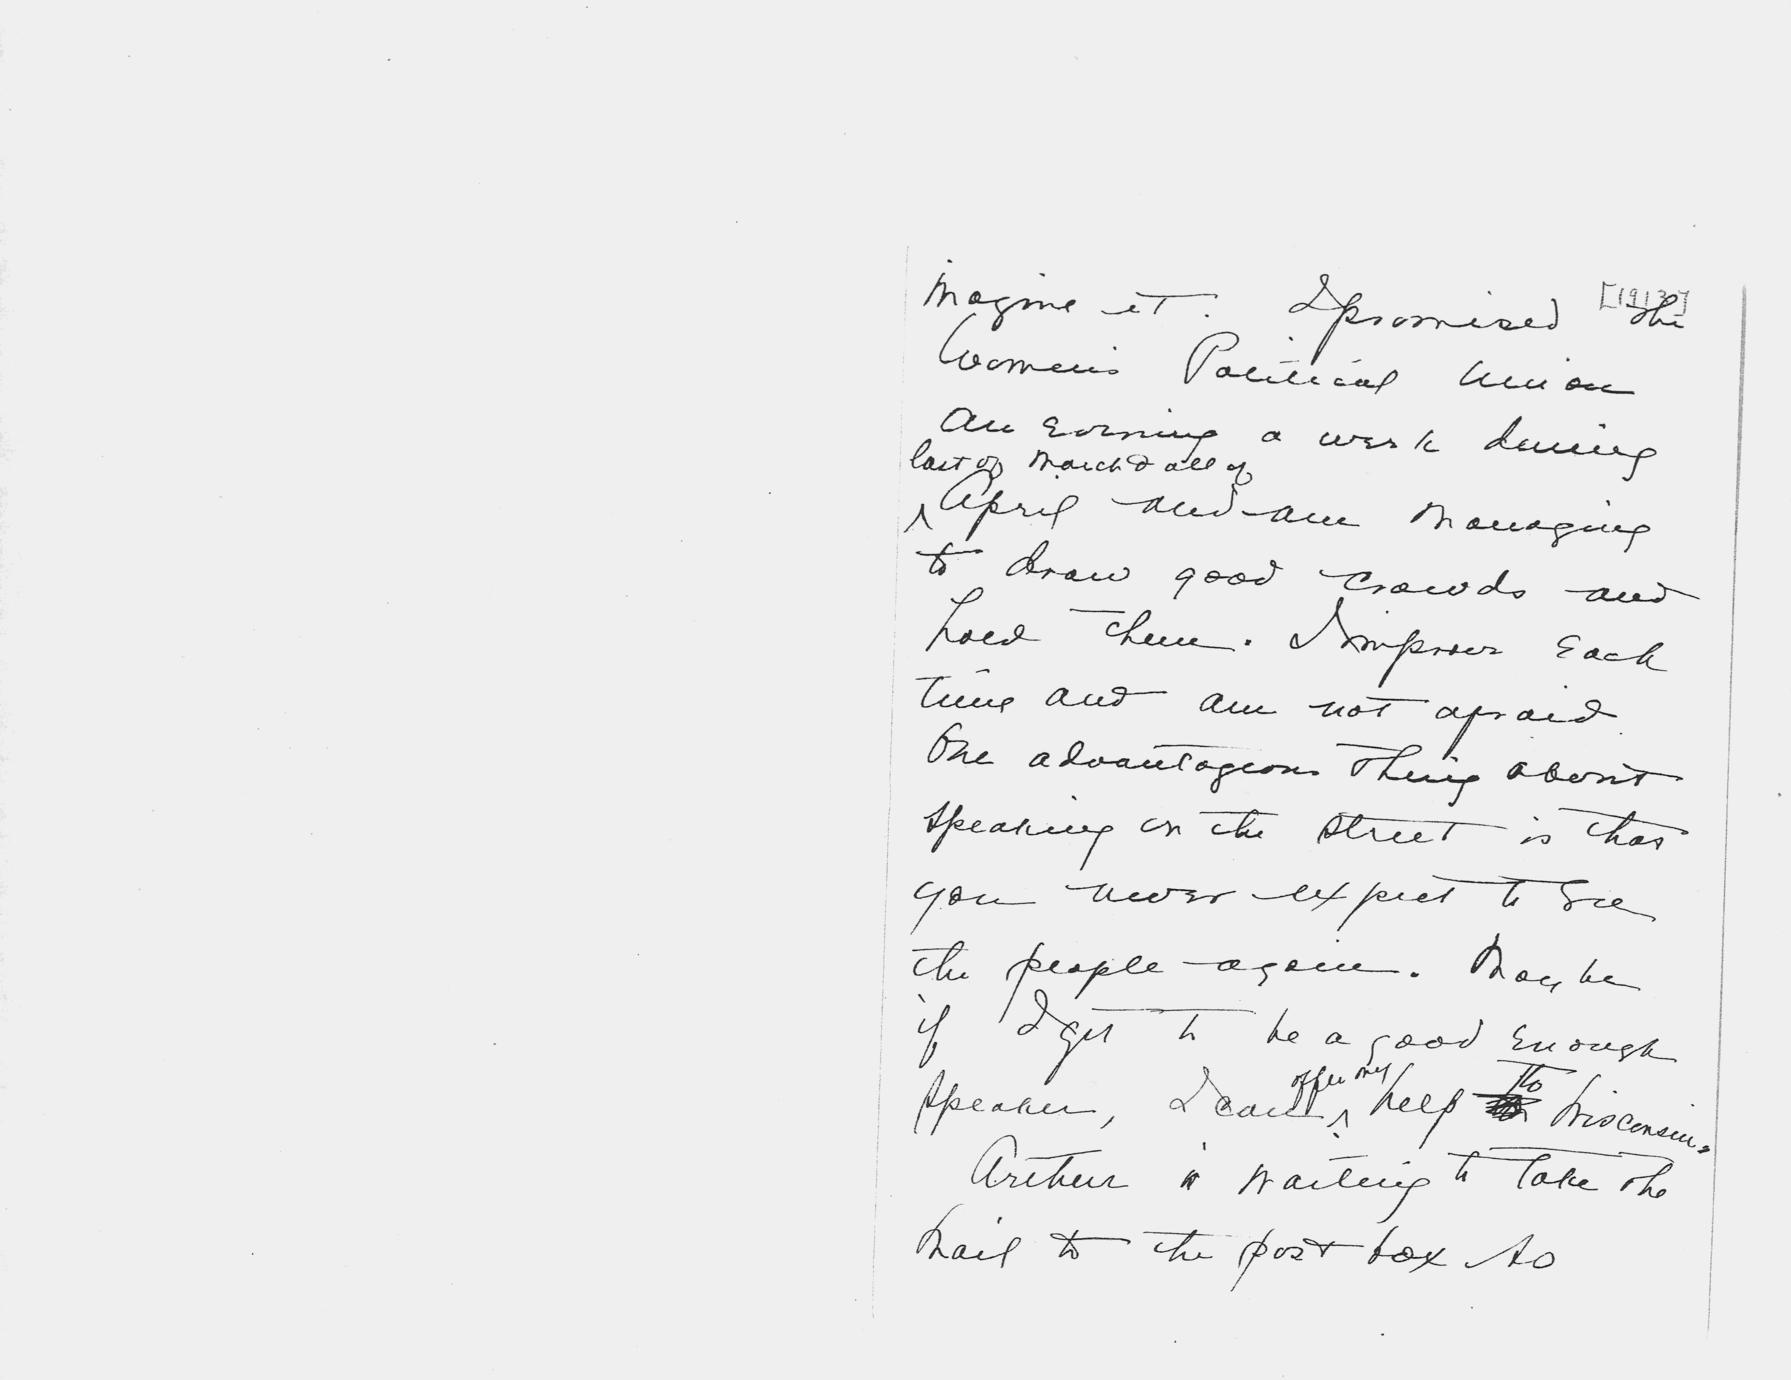 [1913?]
imagine it. I promised the
Women's Political Union
an evening a week during
last of March & all of
April and am managing
to draw good crowds and
hold them. I improve each
time and am not afraid
One advantageous thing about
speaking on the street is that
you never expect to see
the people again. Maybe
if I get to be a good enough
speaker, I can offer my help to Wisconsin.
Arthur is waiting to take the
mail to the post box so